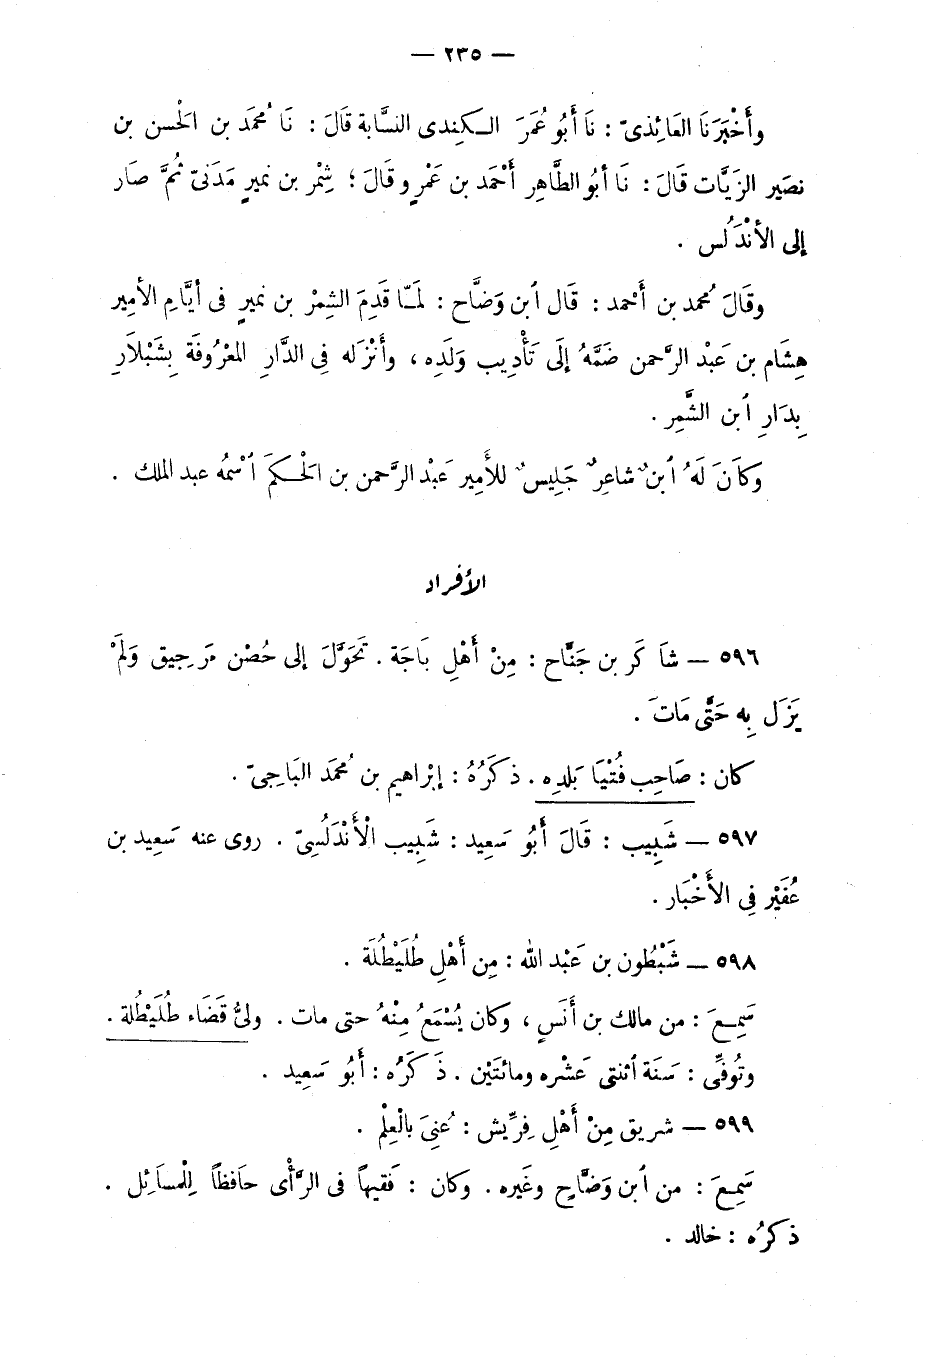 — ٢٣٥ —
وأَخْبَرَنَا العَائِذىّ : نَا أَبُو عُمَرَ الكِندى النسَّابة قَالَ : نَا مُحمَد بن الحْسن بن
نصَير الزَيَّات قَالَ : نَا أبُو الطَّاهِر أَحْمَد بن عَمْرٍو قَالَ ؛ شِمْر بن نميرٍ مَدَنىّ ثُمَّ صَار
إلى الأنْدَلُس .
وقَالَ مُحمد بن أَحمد : قَال ابن وَضَّاح : لَمَّا قَدِمَ الشِمْر بن نميرٍ فى أيَّامِ الأمِير
هِشَام بن عَبْد الرَّحمن ضَمَّهُ إلَى تَأْدِيب وَلَدِه ، وأَنْزَله فِى الدَّارِ المعْرُوفَة بِشَبْلَارِ
بِدَارِ ابن الشَّمِر .
وكاَنَ لَهُ ابنٌ شاعِرٌ جَلِيسٌ للأَمِير عَبْد الرَّحمن بن الحْكَمَ اسْمُه عبد الملك .
الأفراد
٥٩٦ — شاَ كَر بن جَنَّاح : مِنْ أَهْلِ بَاجَة . تَحَوَّلَ إلى حُصْن مَرجيق وَلَمْ
يَزَل بِه حَتَّى مَاتَ .
كان : صَاحِب فُتْيَا بَلدِه . ذكَرَهُ : إبْراهيم بن مُحمَد البَاجىّ .
٥٩٧ — شَبِيب : قَالَ أَبُو سَعِيد : شَبِيب الْأَنْدَلُسِىّ . روى عنه سَعِيد بن
عُفَيْر فِى الأَخْبَار .
٥٩٨ — شَبْطُون بن عَبْد الله : مِن أَهْلِ طُلَيْطُلَة .
سَمِعَ : من مالك بن أَنَسٍ ، وكان يُسْمَعُ مِنْهُ حتى مات . ولىُّ قَضَاء طُلَيْطُلة .
وتُوفِّى : سَنَة اثنتى عَشْره ومائتَيْن . ذَكَرُه : أَبُو سَعِيد .
٥٩٩ — شريق مِنْ أَهْلِ فِرِّيش : عُنِىَ بالْعِلْمِ .
سَمِعَ : من ابن وَضَّاحٍ وغَيره . وكان : فَقيهاً فى الرَّأْى حاَفظاً لِلْمساَئِل .
ذكَرُه : خالد .